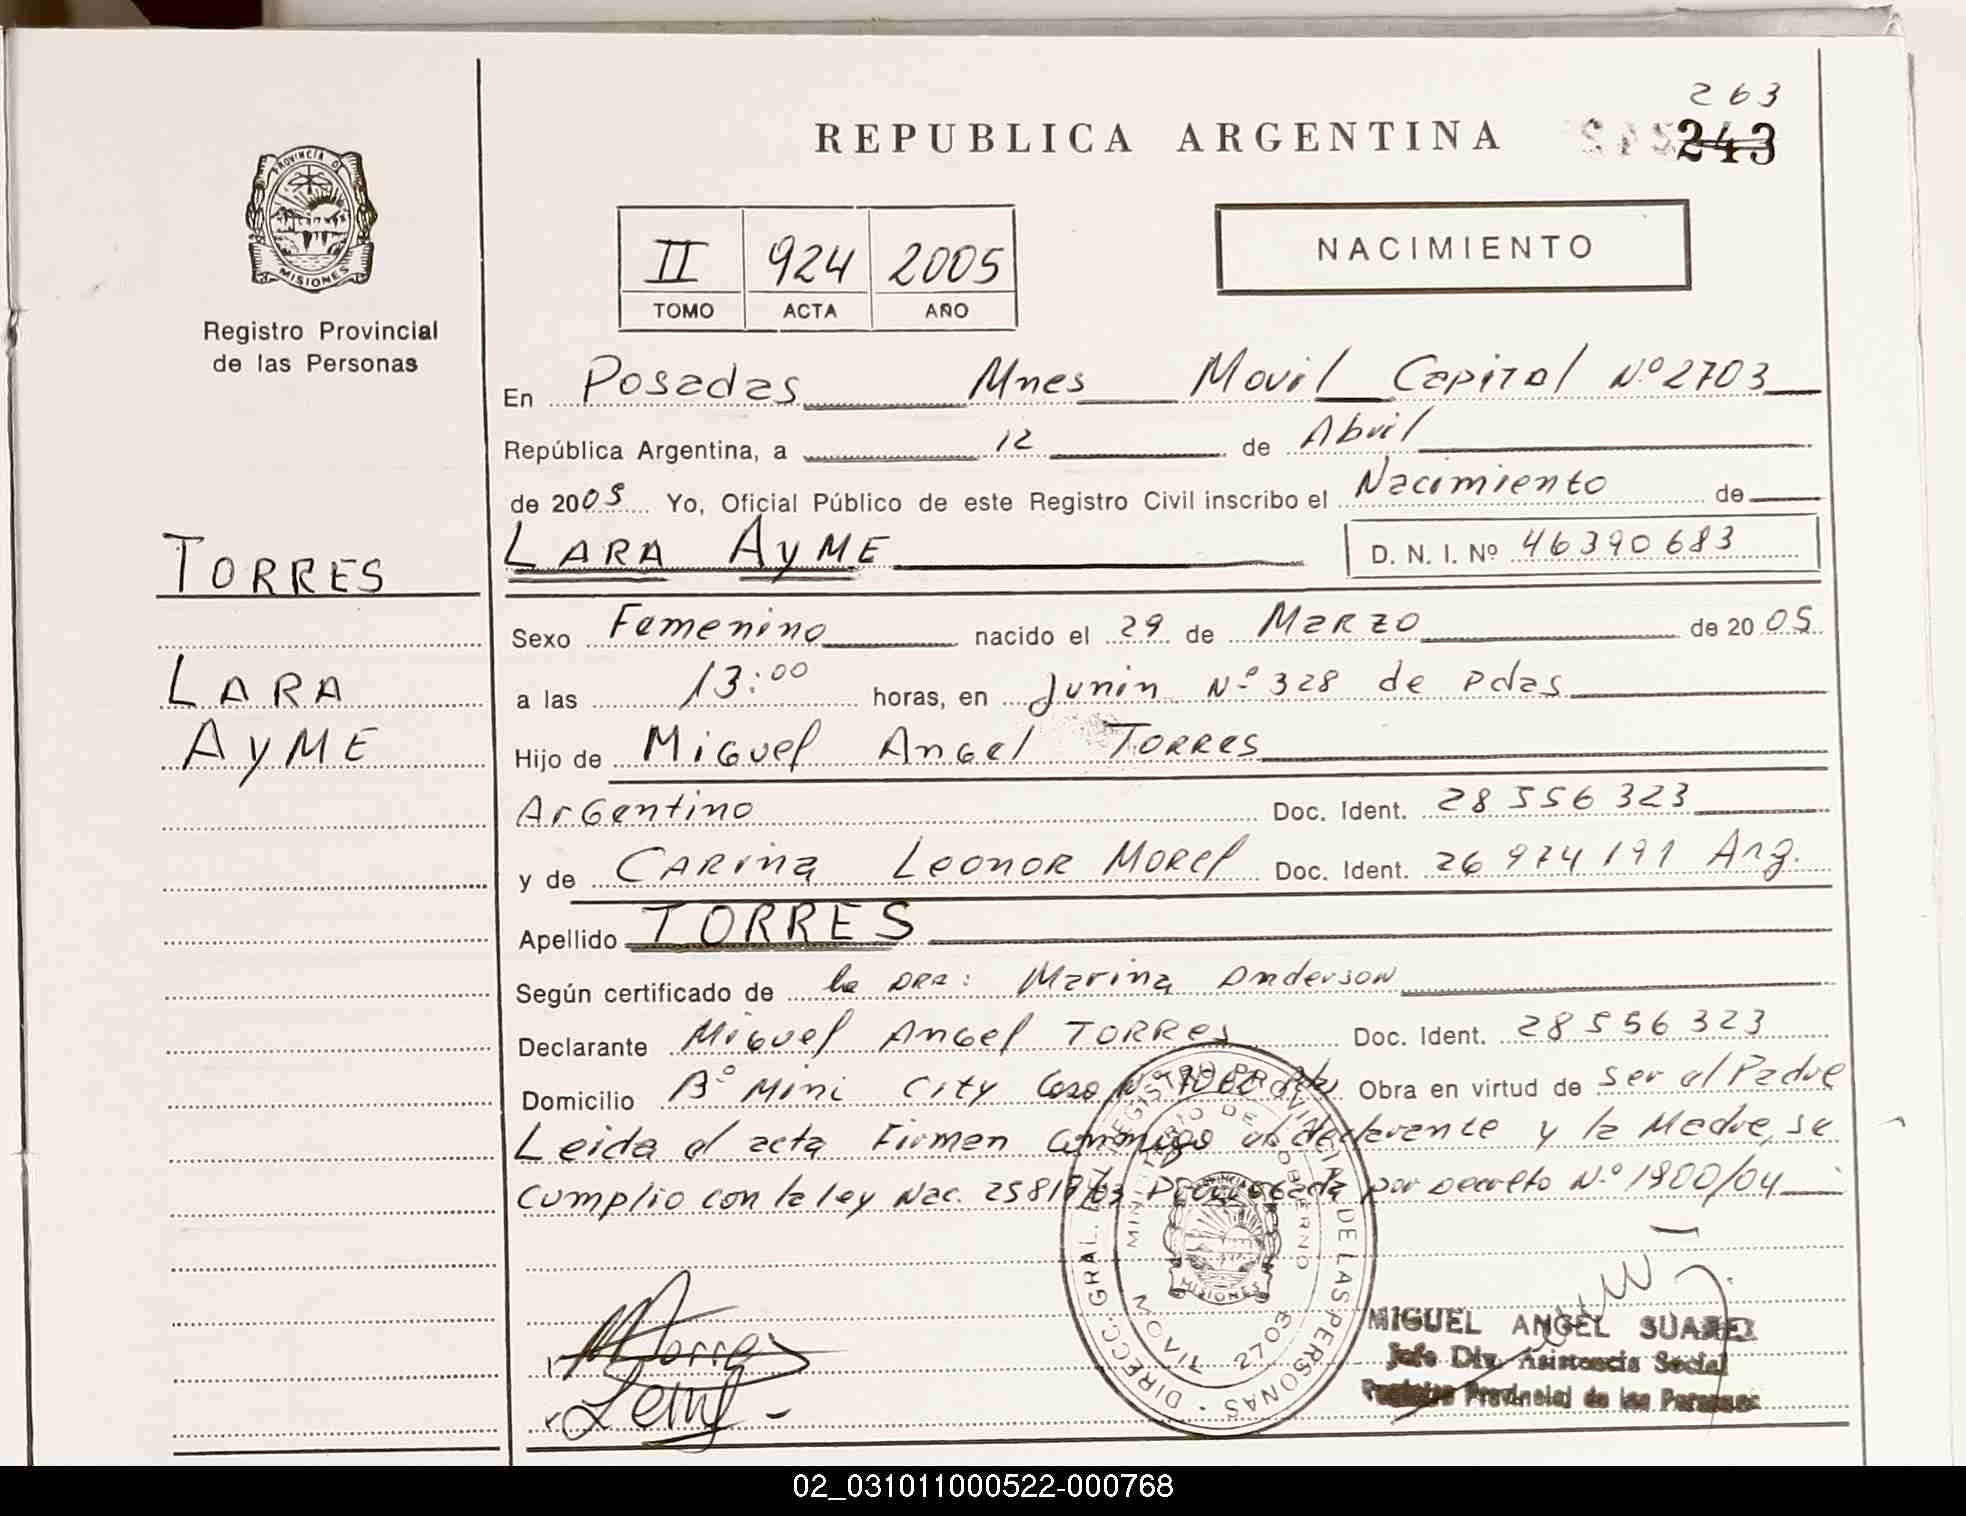 263
REPUBLICA ARGENTINA 243
PROVINCIA DE
MISIONES
Registro Provincial
de las Personas
II 924 2005
TOMO ACTA AÑO
NACIMIENTO
En Posadas Mnes Movil Capital Nº 2703
República Argentina, a 12 de Abril
de 2005 Yo, Oficial Público de este Registro Civil inscribo el Nacimiento de
LARA AyME D. N. I. Nº 46390683
TORRES
LARA
AyME
Sexo Femenino nacido el 29 de Marzo de 2005
a las 13:00 horas, en Junin Nº 328 de Pdas
Hijo de Miguel Angel Torres
Argentino Doc. Ident. 28 556 323
y de Carina Leonor Morel Doc. Ident. 26 974 191 Arg.
Apellido TORRES
Según certificado de la DRA: Marina Anderson
Declarante Miguel Angel TORRes Doc. Ident. 28 556 323
Domicilio Bº Mini City Casa Nº Obra en virtud de ser el Padre
Leida el acta Firman conmigo el declarante y la Madre, se
Cumplio con la ley Nac. 25819/03 por Decreto Nº 1900/04
DIRECC. GRAL. DEL REGISTRO PROVINCIAL DE LAS PERSONAS
MINISTERIO DE GOBIERNO
PROVINCIA DE
MISIONES
MOVIL 2703
MTorres
MIGUEL ANGEL SUAREZ
Jefe Div. Asistencia Social
Registro Provincial de las Personas
02_031011000522-000768